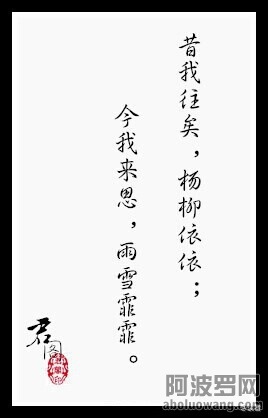 昔我往矣，杨柳依依；
今我来思，雨雪霏霏。
君
阿波罗网
aboluowang.com